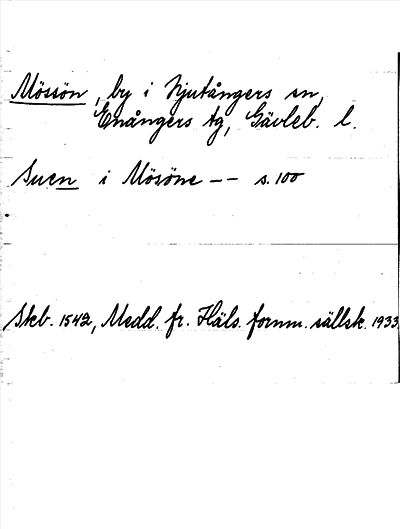 Mössön, by i Njutångers sn,
Enångers tg, Gävleb. l.
Suen i Mösöne -- s. 100
Skb. 1542, Medd. fr. Häls. fornm. sällsk. 1933